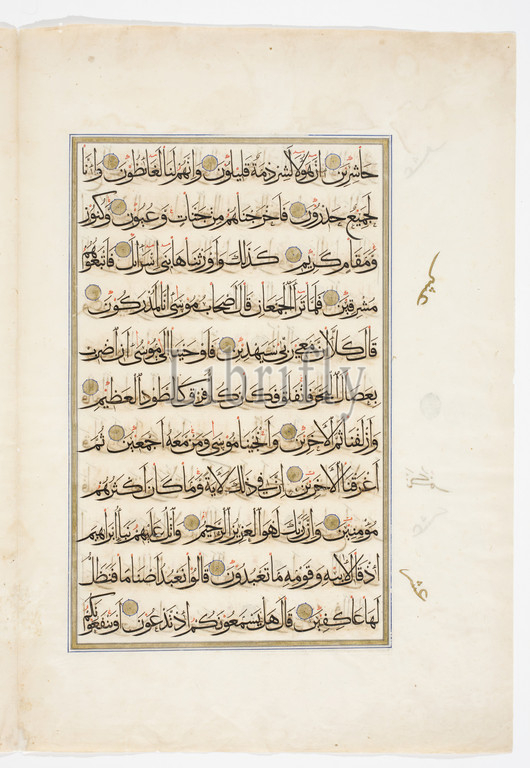 حاشرين ان هؤلا لشرذمة قليلون وانهم لنا لغائظون وانا
لجميع حذرون فاخرجناهم من جنات وعيون وكنوز
ومقام كريم كذلك واورثناها بنى اسرائل فاتبعوهم
مشرقين فلما ترا الجمعان قال اصحاب موسى انا لمدركون
قال كلا ان معى ربى سيهدين فاوحينا الى موسى ان اضرب
بعصاك البحر فانفلق فكان كل فرق كالطود العظيم
وازلفنا ثم الاخرين وانجينا موسى ومن معه اجمعين ثم
اغرقنا الاخرين ان فى ذلك لاية وما كان اكثرهم
مؤمنين وان ربك لهو العزيز الرحيم واتل عليهم نبا ابراهيم
اذ قال لابيه وقومه ما تعبدون قالوا نعبد اصناما فنظل
لها عاكفين قال هل يسمعونكم اذ تدعون او ينفعونكم
عشر
Librifly